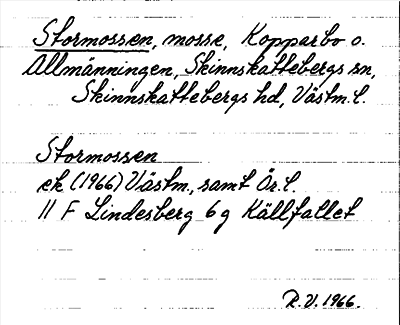 Stormossen, mosse, Kopparbo o.
Allmänningen, Skinnskattebergs sn,
Skinnskattebergs hd, Västm. l.
Stormossen
ek (1966) Västm., samt Ör. l.
11 F Lindesberg 6g Källfallet
R.V. 1966.